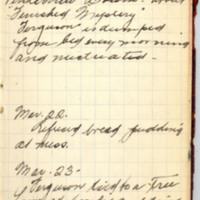 "Finished Mystery"
Ferguson is dumped
from bed every morning
and mistreated.
Mar. 22.
Refused bread pudding
at mess.
Mar. 23-
Ferguson tied to a tree